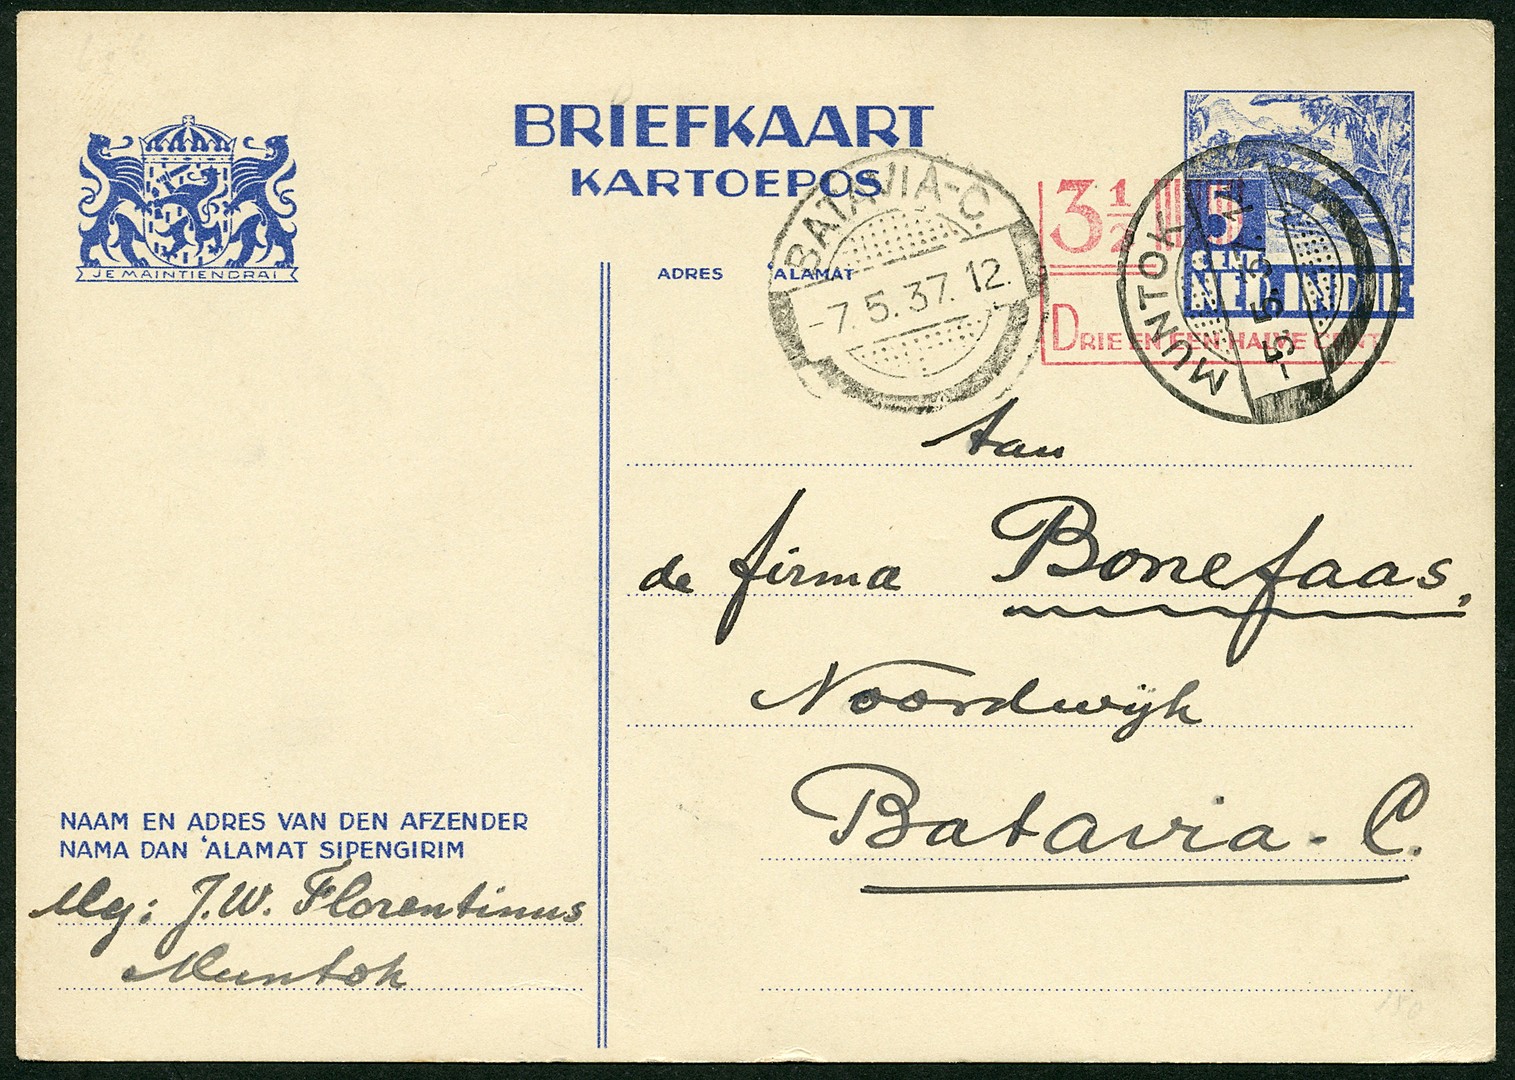 BRIEFKAART
KARTOEPOS
JE MAINTIENDRAI
ADRES 'ALAMAT
BATAVIA-C.
-7.5.37.12.
3½ 5
CENT
NED. INDIE
DRIE EN EEN HALVE CENT
MUNTOK
Aan
de firma Bonefaas,
Noordwijk
Batavia-C.
NAAM EN ADRES VAN DEN AFZENDER
NAMA DAN 'ALAMAT SIPENGIRIM
Mej: J.W. Florentinus
Muntok
180